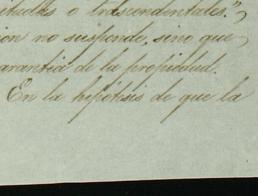 citadas o trascendentales."
ion no suspende, sino que
arantia de la propiedad.
En la hipótesis de que la